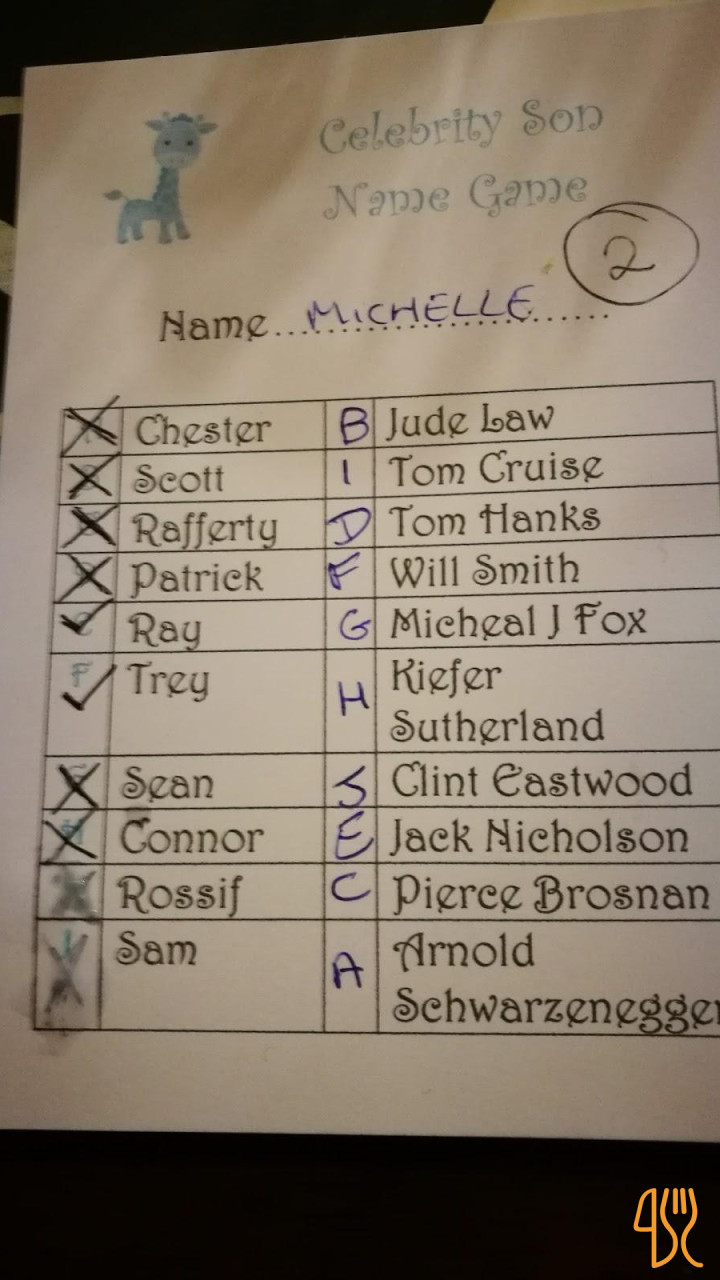 Celebrity Son
Name Game
2
Name ... MICHELLE ......
Chester B Jude Law
Scott I Tom Cruise
Rafferty D Tom Hanks
Patrick F Will Smith
Ray G Micheal J Fox
F Trey H Kiefer
Sutherland
Sean J Clint Eastwood
Connor E Jack Nicholson
Rossif C Pierce Brosnan
Sam A Arnold
Schwarzenegger